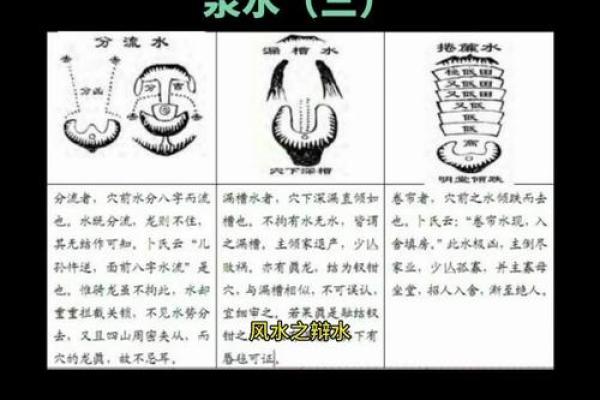 水（三）
分流水
分凶
分吉
漏槽水
穴下深槽
捲簾水
極低田
又低田
又低田
又低
低
低
高
明堂傾跌
分流者，穴前水分八字而流
也。水既分流，龙则不住，
其无结作可知。卜氏云“儿
孙忤逆，面前八字水流”是
也。惟骑龙虽不拘此，水却
重重拦截关锁，不见水势分
去，又且四山周密夹从，而
穴的龙真，故不忌耳。
漏槽水者，穴下深漏直倾如
槽也。不拘有水无水，皆谓
之漏槽，主倾家退产，少亡
败祸。亦有真龙，结为钗钳
穴，与漏槽相似，不可误认，
宜细审之。若果真是融结钗
钳之
下有
唇毡可证。
卷帘者，穴前之水倾跌而去
也。卜氏云：“卷帘水现，入
舍填房。”此水极凶，主倒尽
家业，少亡孤寡，并主寡母
坐堂，招人入舍，渐至绝人。
风水之辩水